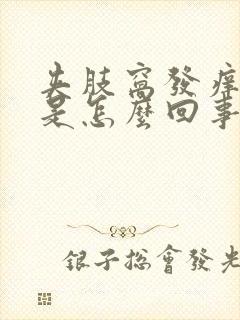 夹肢窝發痒
是怎麼回事
銀子總會發光